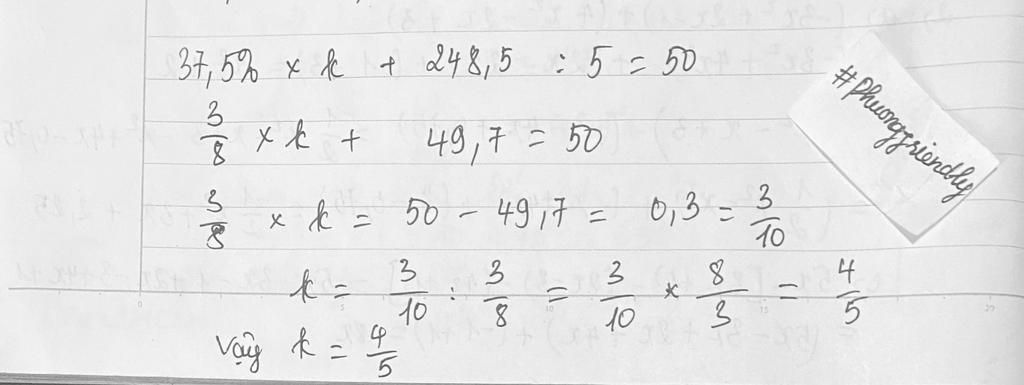 37,5% × k + 248,5 : 5 = 50
3/8 × k + 49,7 = 50
3/8 × k = 50 - 49,7 = 0,3 = 3/10
k = 3/10 : 3/8 = 3/10 × 8/3 = 4/5
Vậy k = 4/5
#Phuongfriendly